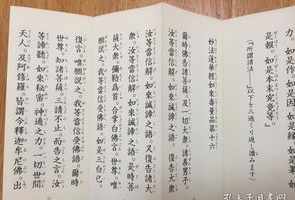 力。如是作。如是因。如是緣。如是果。如
是報。如是本末究竟等。
「所謂諸法…」(以下を三遍くり返し讀みます)
妙法蓮華經如來壽量品第十六
爾時佛告諸菩薩。及一切大衆。諸善男子。
汝等當信解。如來誠諦之語。復告大衆。
汝等當信解。如來誠諦之語。又復告諸大
衆。汝等當信解。如來誠諦之語。是時菩
薩大衆。彌勒爲首。合掌白佛言。世尊。唯
願說之。我等當信受佛語。如是三白已。
復言。唯願說之。我等當信受佛語。爾時
世尊。知諸菩薩。三請不止。而告之言。汝
等諦聽。如來祕密。神通之力。一切世間
天人。及阿修羅。皆謂今釋迦牟尼佛。出